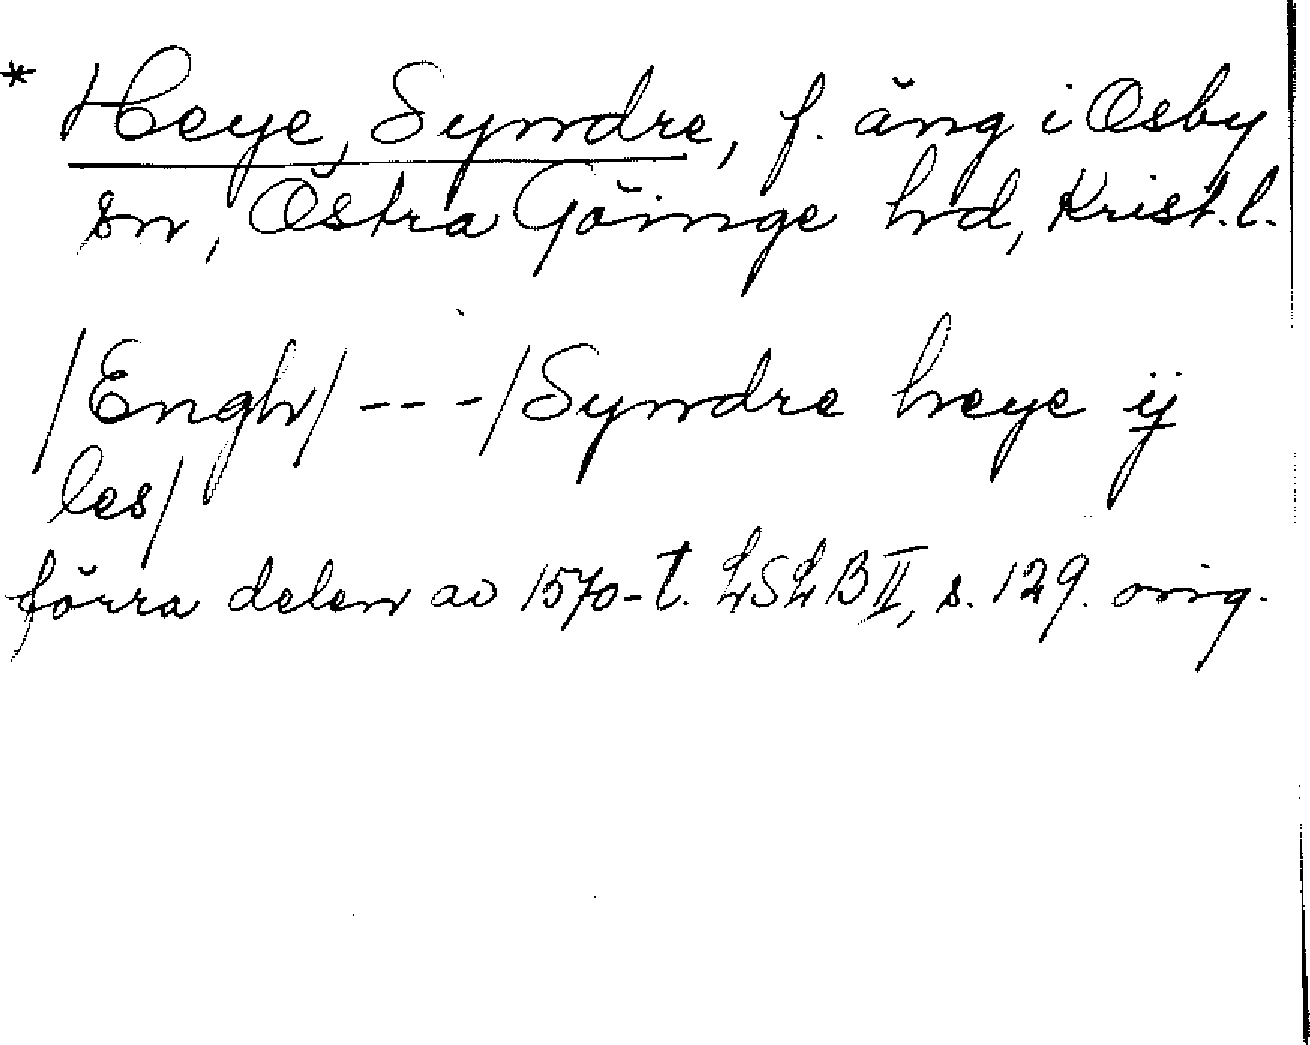 * Heye, Syndre, f. äng i Osby
sn, Östra Göinge hd, Krist. l.
/Engh/ --- /Syndre heye ij
les/
förra delen av 1570-t. LSLB II, s. 129. orig.